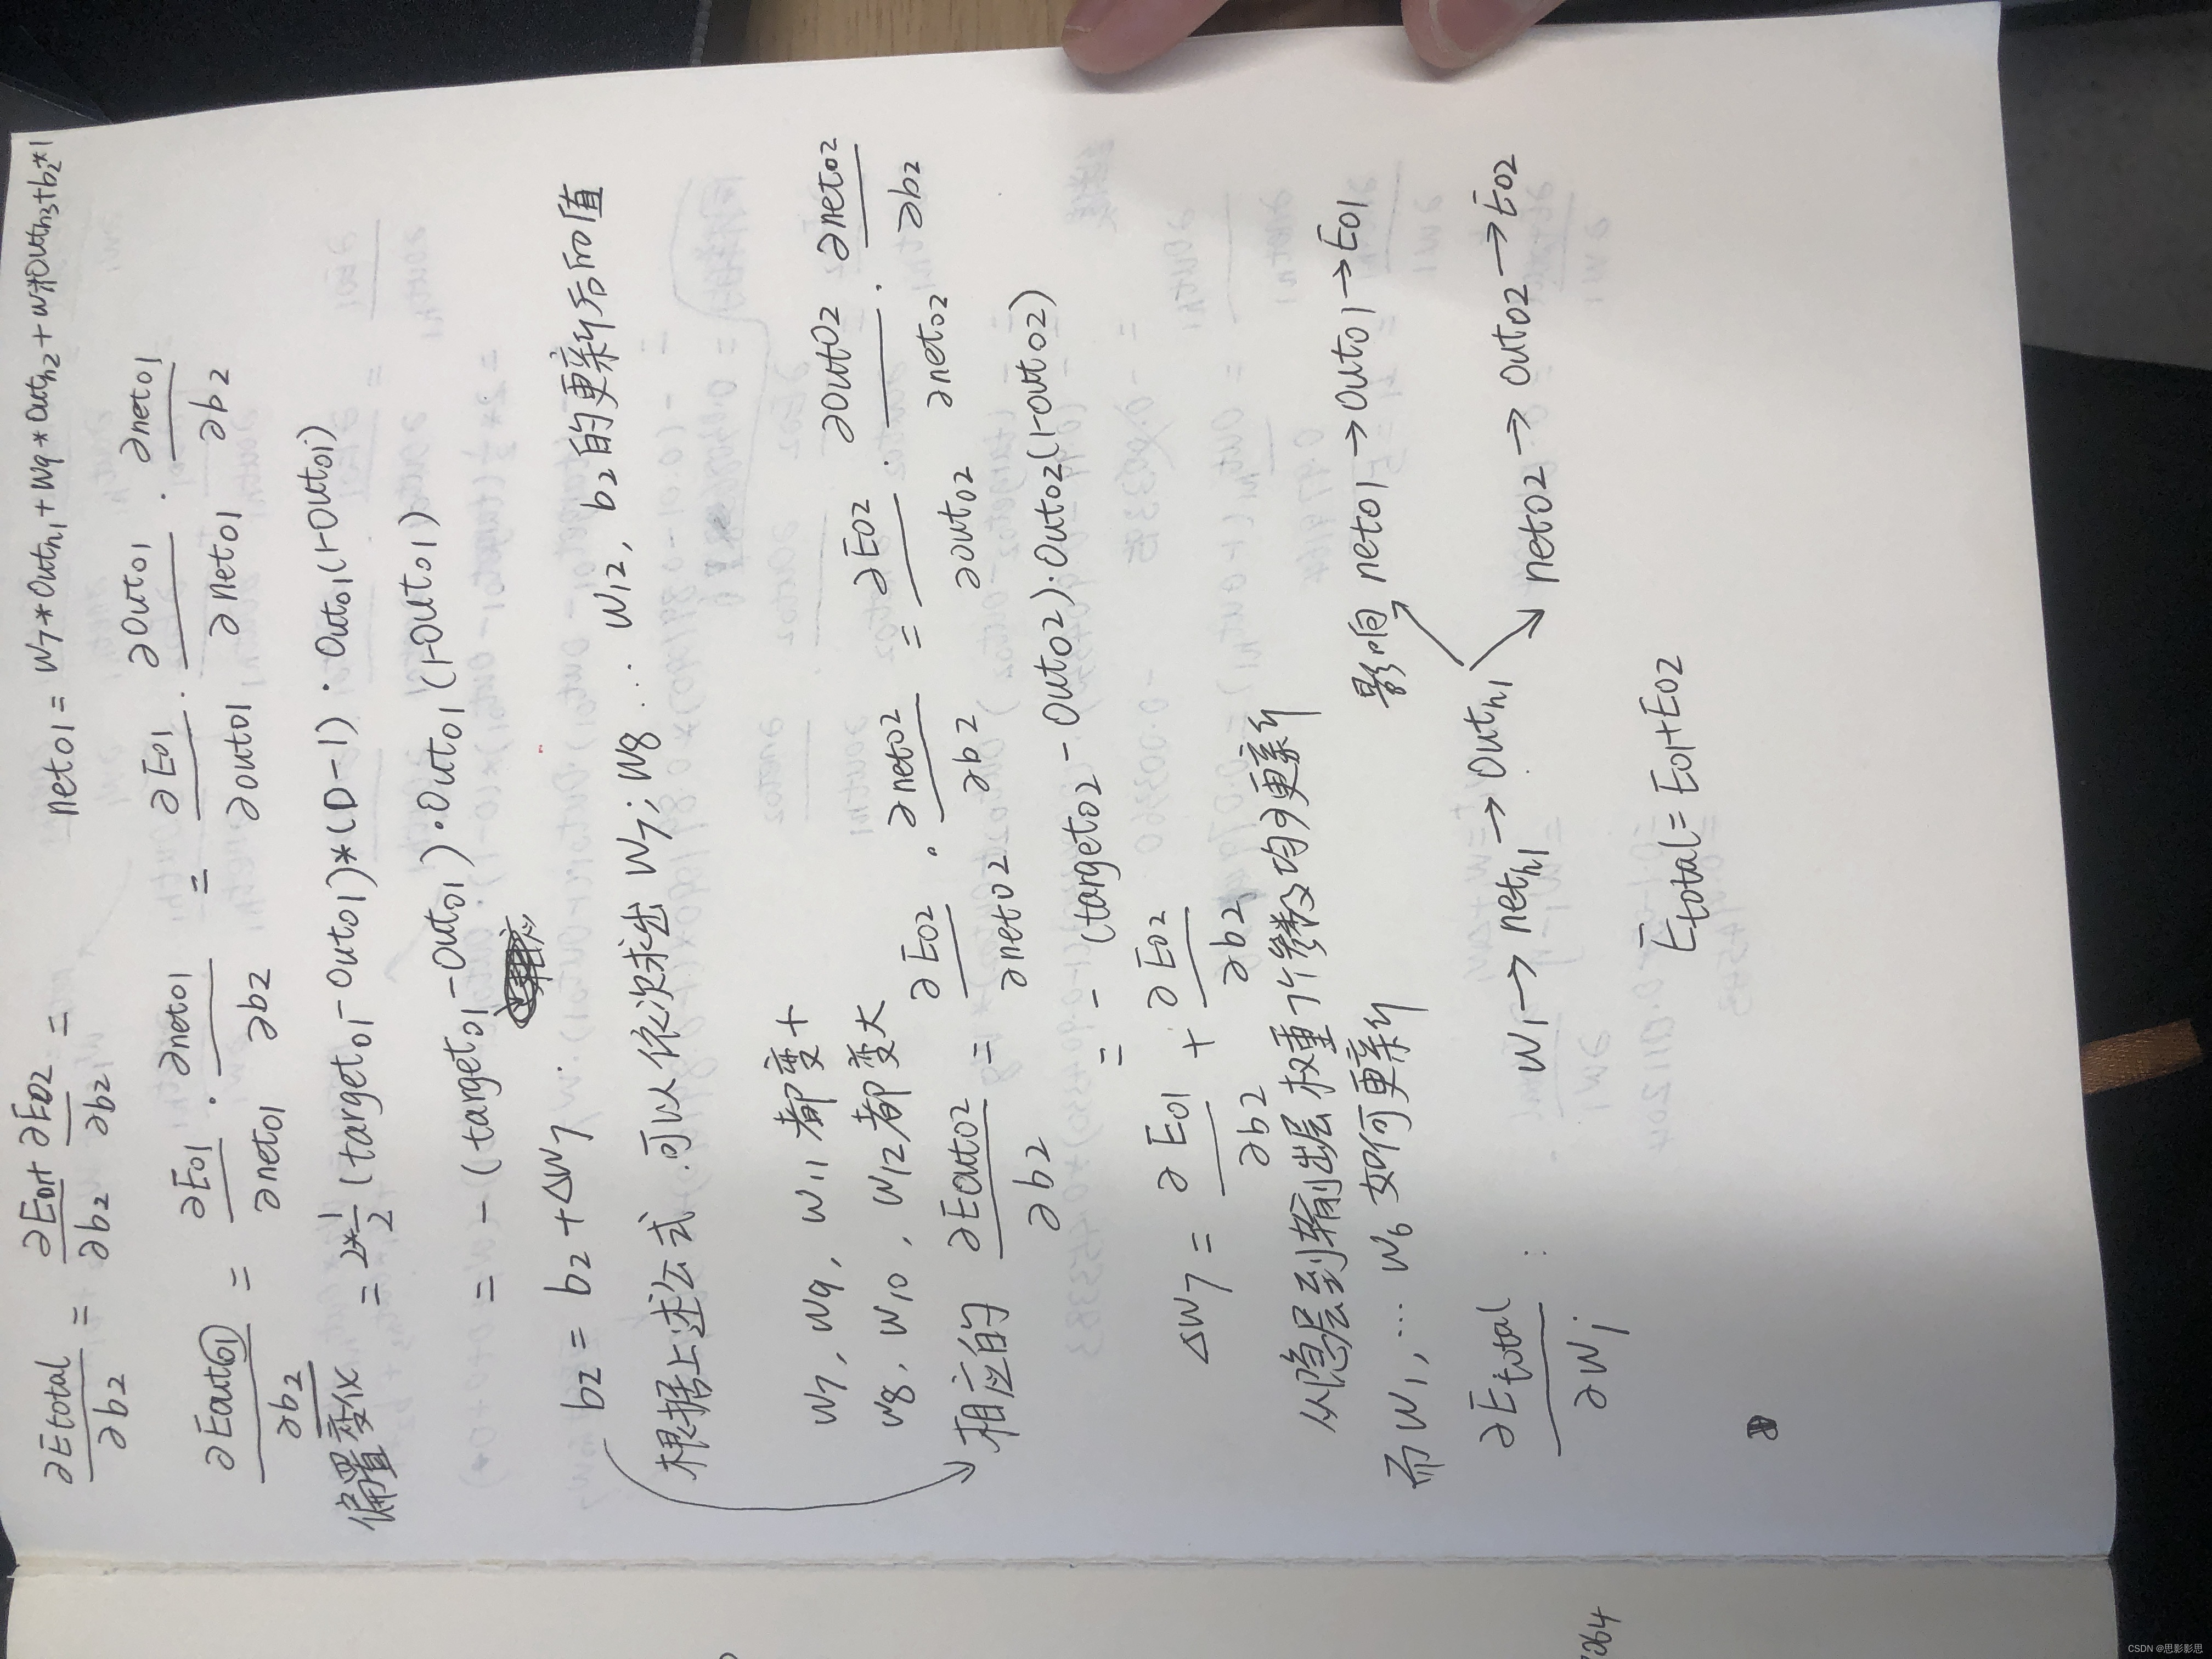 ∂Etotal/∂b2 = ∂Eo1/∂b2 + ∂Eo2/∂b2 = neto1 = w7*Outh1+w9*Outh2+w11*Outh3+b2*1
∂Eouto1/∂b2 = ∂Eo1/∂neto1 · ∂neto1/∂b2 = ∂Eo1/∂outo1 · ∂Outo1/∂neto1 · ∂neto1/∂b2
偏置变化 = 2*1/2(targeto1-Outo1)*(0-1)·Outo1(1-Outo1)
= -(targeto1-Outo1)·Outo1(1-Outo1)
b2 = b2+ΔW7
根据上述公式.可以依次求出 W7; W8 ... W12, b2的更新后的值
W7, W9, W11 都变
W8, W10, W12都变大
相应的 ∂Eouto2/∂b2 = ∂Eo2/∂neto2 · ∂neto2/∂b2 = ∂Eo2/∂outo2 · ∂OutO2/∂neto2 · ∂neto2/∂b2
= -(targeto2-Outo2)·Outo2(1-outo2)
ΔW7 = ∂Eo1/∂b2 + ∂Eo2/∂b2
从隐层到输出层权重7个参数均已更新
而W1, ... W6如何更新
影响 neto1→Outo1→Eo1
∂Etotal/∂Wi : W1→neth1→Outh1
neto2→Outo2→Eo2
Etotal=Eo1+Eo2
7264
CSDN @思影影思